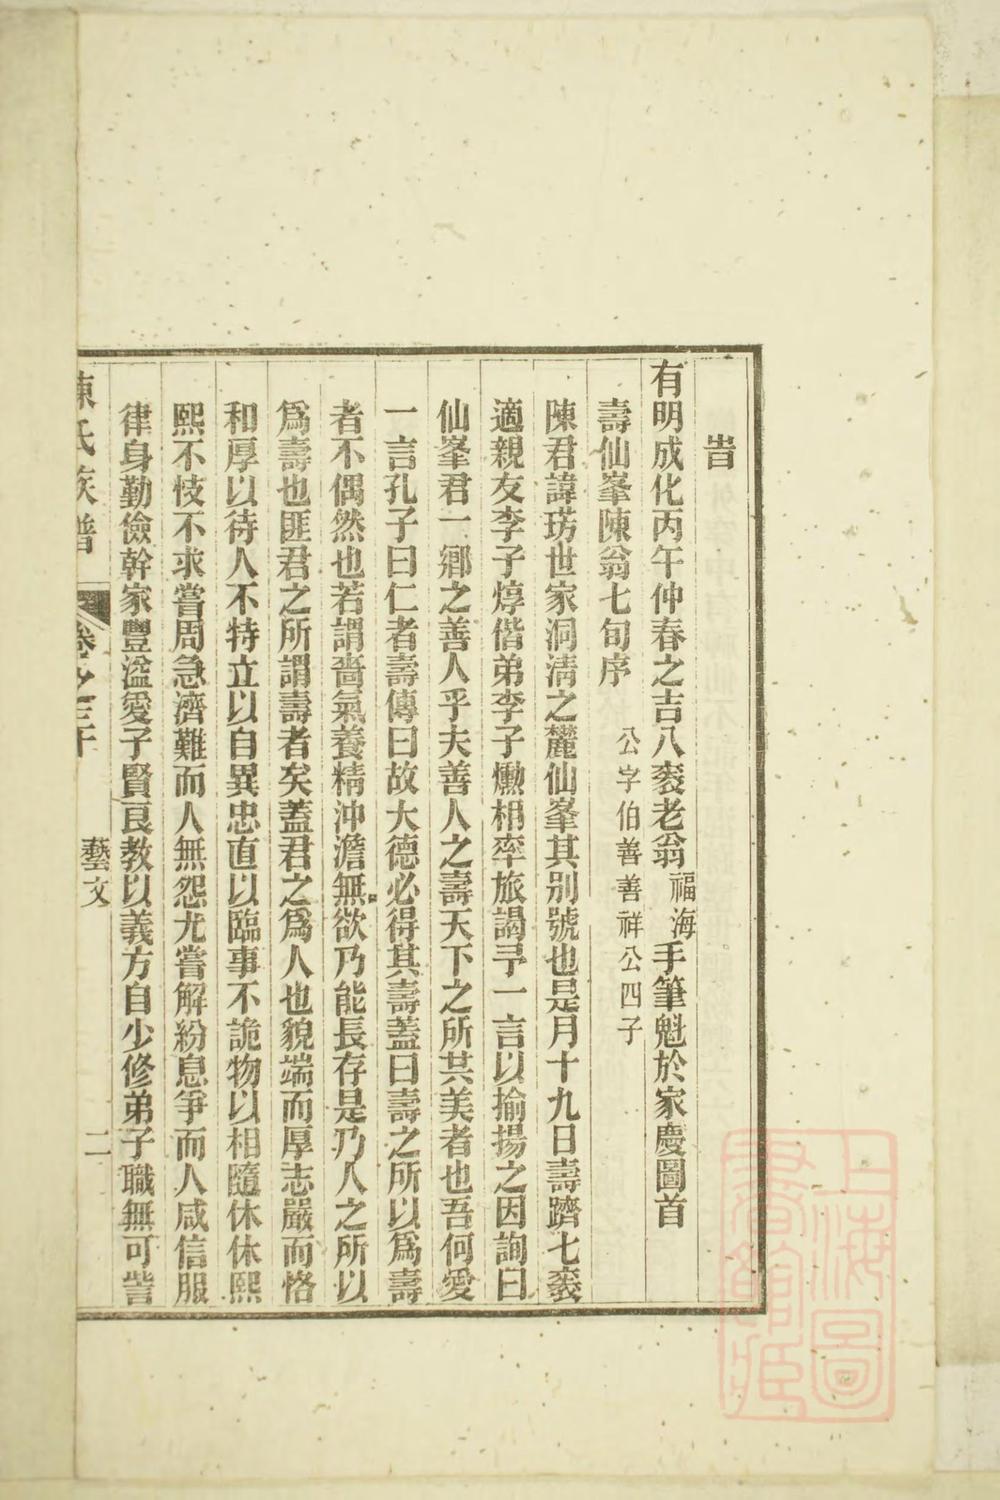 旹
有明成化丙午仲春之吉八袠老翁福海手筆魁於家慶圖首
壽仙峯陳翁七旬序 公字伯善善祥公四子
陳君諱琈世家洞淸之麓仙峯其別號也是月十九日壽躋七袠
適親友李子焞偕弟李子懒相率旅謁予一言以揄揚之因詢曰
仙峯君一鄉之善人乎夫善人之壽天下之所其美者也吾何愛
一言孔子曰仁者壽傳曰故大德必得其壽蓋曰壽之所以爲壽
者不偶然也若謂嗇氣養精沖澹無欲乃能長存是乃人之所以
爲壽也匪君之所謂壽者矣蓋君之爲人也貌端而厚志嚴而恪
和厚以待人不特立以自異忠直以臨事不詭物以相隨休休熙
熙不忮不求嘗周急濟難而人無怨尤嘗解紛息爭而人咸信服
律身勤儉幹家豐溢愛子賢良教以義方自少修弟子職無可訾
陳氏族譜 卷之三十 藝文 二
上海圖書館藏